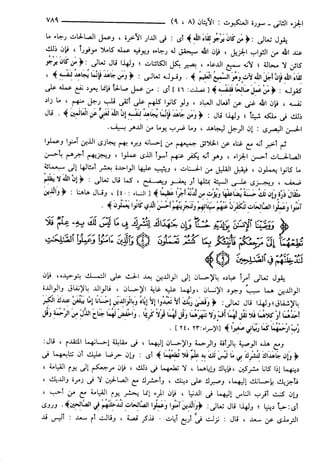 الجزء الثاني - سورة العنكبوت : الآيتان (٨ ، ٩) ٧٨٩
يقول تعالى : ﴿من كان يرجو لقاء الله﴾ أي : في الدار الآخرة ، وعمل الصالحات رجاء ما
عند الله من الثواب الجزيل ، فإن الله سيحقق له رجاءه ويوفيه عمله كاملاً موفوراً ، فإن ذلك
كائن لا محالة ؛ لأنه سميع الدعاء ، بصير بكل الكائنات ؛ ولهذا قال تعالى : ﴿من كان يرجو
لقاء الله فإن أجل الله لآت وهو السميع العليم﴾ . وقوله تعالى : ﴿ومن جاهد فإنما يجاهد لنفسه﴾ ،
كقوله : ﴿من عمل صالحاً فلنفسه﴾ [فصلت : ٤٦] أي : من عمل صالحاً فإنما يعود نفع عمله على
نفسه ، فإن الله غني عن أفعال العباد ، ولو كانوا كلهم على أتقى قلب رجل منهم ، ما زاد
ذلك في ملكه شيئاً ؛ ولهذا قال : ﴿ومن جاهد فإنما يجاهد لنفسه إن الله لغني عن العالمين﴾ . قال
الحسن البصري : إن الرجل ليجاهد ، وما ضرب يوماً من الدهر بسيف.
ثم أخبر أنه مع غناه عن الخلائق جميعهم من إحسانه وبره بهم يجازي الذين آمنوا وعملوا
الصالحات أحسن الجزاء ، وهو أنه يكفر عنهم أسوأ الذي عملوا ، ويجزيهم أجرهم بأحسن
ما كانوا يعملون ، فيقبل القليل من الحسنات ، ويثيب عليها الواحدة بعشر أمثالها إلى سبعمائة
ضعف ، ويجزي على السيئة بمثلها أو يعفو ويصفح ، كما قال تعالى : ﴿إن الله لا يظلم
مثقال ذرة وإن تك حسنة يضاعفها ويؤت من لدنه أجراً عظيماً﴾ [النساء : ٤٠] ، وقال هاهنا : ﴿والذين
آمنوا وعملوا الصالحات لنكفرن عنهم سيئاتهم ولنجزينهم أحسن الذي كانوا يعملون﴾ .
﴿ووصينا الإنسان بوالديه حسنا وإن جاهداك لتشرك بي ما ليس لك به علم فلا
تطعهما إلي مرجعكم فأنبئكم بما كنتم تعملون والذين آمنوا وعملوا الصالحات
لندخلنهم في الصالحين﴾
يقول تعالى آمراً عباده بالإحسان إلى الوالدين بعد الحث على التمسك بتوحيده ، فإن
الوالدين هما سبب وجود الإنسان ، ولهما عليه غاية الإحسان ، فالوالد بالإنفاق والوالدة
بالإشفاق ؛ ولهذا قال تعالى : ﴿وقضى ربك ألا تعبدوا إلا إياه وبالوالدين إحساناً إما يبلغن عندك الكبر
أحدهما أو كلاهما فلا تقل لهما أف ولا تنهرهما وقل لهما قولاً كريماً . واخفض لهما جناح الذل من الرحمة وقل
رب ارحمهما كما ربياني صغيراً﴾ [الإسراء: ٢٣ ، ٢٤].
ومع هذه الوصية بالرأفة والرحمة والإحسان إليهما ، في مقابلة إحسانهما المتقدم ، قال :
﴿وإن جاهداك لتشرك بي ما ليس لك به علم فلا تطعهما﴾ أي : وإن حرصا عليك أن تتابعهما في
دينهما إذا كانا مشركين ، فإياك وإياهما ، لا تطعهما في ذلك ، فإن مرجعكم إلي يوم القيامة ،
فأجزيك بإحسانك إليهما، وصبرك على دينك ، وأحشرك مع الصالحين لا في زمرة والديك ،
وإن كنت أقرب الناس إليهما في الدنيا ، فإن المرء إنما يحشر يوم القيامة مع من أحب ،
أي: حباً دينياً ؛ ولهذا قال تعالى : ﴿والذين آمنوا وعملوا الصالحات لندخلنهم في الصالحين﴾. وروى
الترمذي عن سعد ، قال : نزلت في أربع آيات . فذكر قصة ، وقالت أم سعد : أليس قد